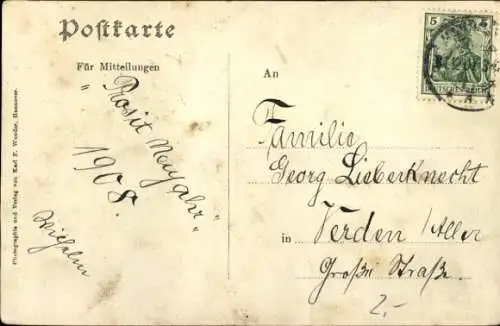 Postkarte
Für Mitteilungen
„Prosit Neujahr"
1908.
Wilhelm
Photographie und Verlag von Karl F. Wunder, Hannover.
An
Familie
Georg Lieberknecht
in Verden /Aller
Große Straße.
2.-
5
DEUTSCHES REICH